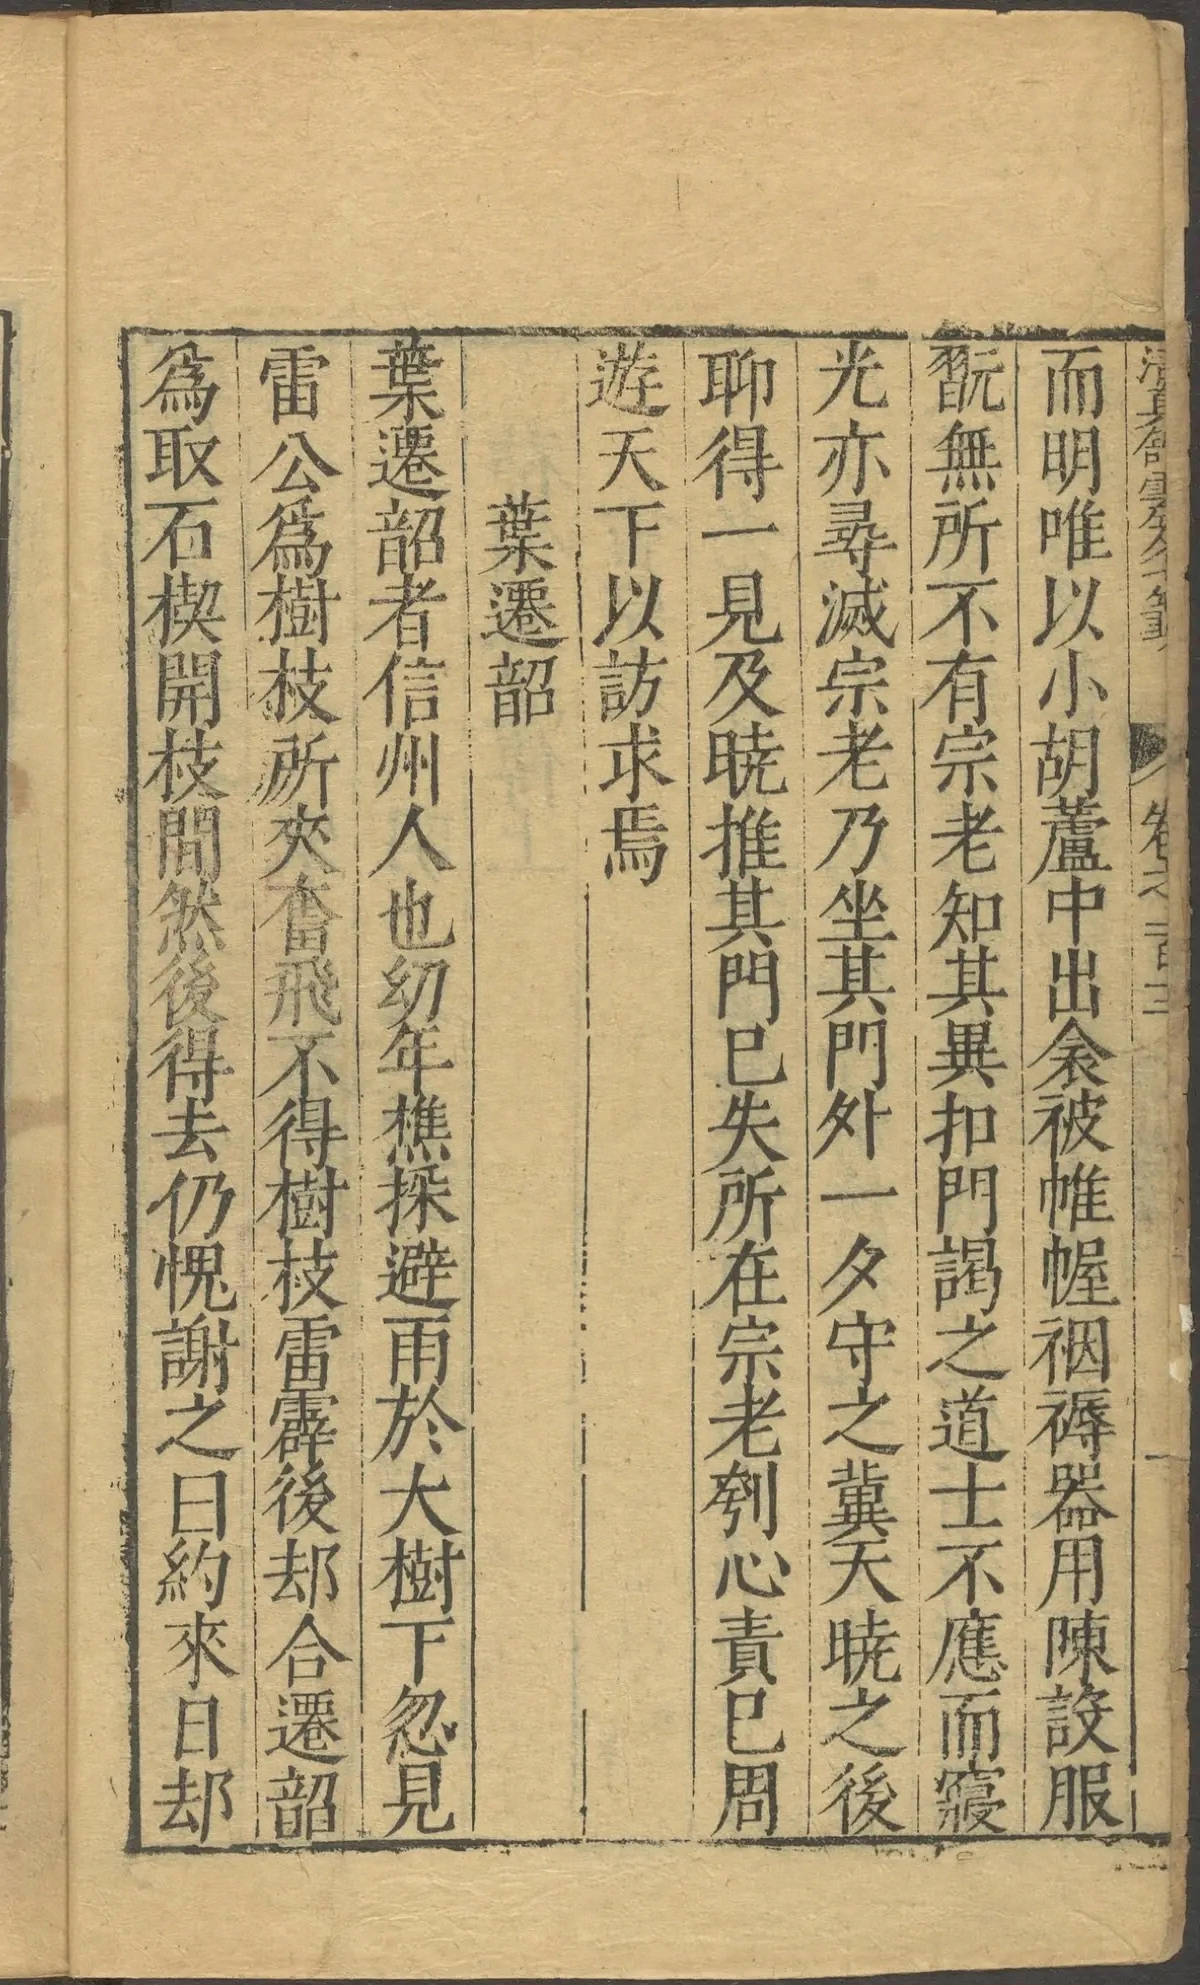 清真館雲笈七籤 卷之一百三 一
而明唯以小胡蘆中出衾被帷幄裀褥器用陳設服
翫無所不有宗老知其異扣門謁之道士不應而寢
光亦尋滅宗老乃坐其門外一夕守之冀天曉之後
聊得一見及曉推其門已失所在宗老刳心責已周
遊天下以訪求焉
葉遷韶
葉遷韶者信州人也幼年樵採避雨於大樹下忽見
雷公為樹枝所夾奮飛不得樹枝雷霹後却合遷韶
為取石楔開枝間然後得去仍愧謝之曰約來日却